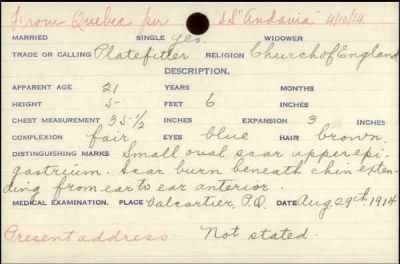 From Quebec per S.S "Andania" 4/10/14
MARRIED SINGLE yes. WIDOWER
TRADE OR CALLING Platefitter RELIGION Church of England
DESCRIPTION.
APPARENT AGE 21 YEARS MONTHS
HEIGHT 5- FEET 6 INCHES
CHEST MEASUREMENT 35-1/2 INCHES EXPANSION 3 INCHES
COMPLEXION fair EYES blue HAIR brown.
DISTINGUISHING MARKS Small oval scar upper epi-
gastrium. Scar burn beneath chin exten-
ding from ear to ear anterior.
MEDICAL EXAMINATION. PLACE Valcartier, P.Q. DATE Aug 29th 1914
Present address Not stated.